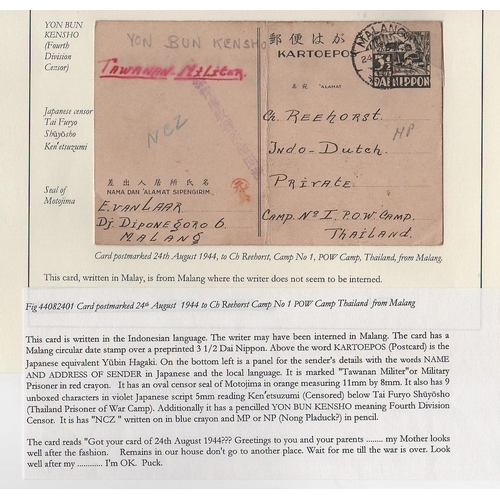 YON BUN
KENSHO
(Fourth
Division
Cezsor)
Japanese censor
Tai Furyo
Shūyōsho
Ken'etsuzumi
Seal of
Motojima
YON BUN KENSHO
TAWANAN-Militer
NCZ
郵便はがき
KARTOEPOS
MALANG
3½
DAI NIPPON
ALAMAT
Ch. REEHORST.
INDO-DUTCH.
PRIVATE
CAMP. No I. P.O.W. CAMP.
THAILAND.
差出人居所氏名
NAMA DAN 'ALAMAT SIPENGIRIM.
E. VAN LAAR
Dj. DIPONEGORO 6
MALANG
Card postmarked 24th August 1944, to Ch Reehorst, Camp No 1, POW Camp, Thailand, from Malang.
This card, written in Malay, is from Malang where the writer does not seem to be interned.
Fig 44082401 Card postmarked 24th August 1944 to Ch Reehorst Camp No 1 POW Camp Thailand from Malang
This card is written in the Indonesian language. The writer may have been interned in Malang. The card has a
Malang circular date stamp over a preprinted 3 1/2 Dai Nippon. Above the word KARTOEPOS (Postcard) is the
Japanese equivalent Yūbin Hagaki. On the bottom left is a panel for the sender's details with the words NAME
AND ADDRESS OF SENDER in Japanese and the local language. It is marked "Tawanan Militer"or Military
Prisoner in red crayon. It has an oval censor seal of Motojima in orange measuring 11mm by 8mm. It also has 9
unboxed characters in violet Japanese script 5mm reading Ken'etsuzumi (Censored) below Tai Furyo Shūyōsho
(Thailand Prisoner of War Camp). Additionally it has a pencilled YON BUN KENSHO meaning Fourth Division
Censor. It is has "NCZ " written on in blue crayon and MP or NP (Nong Pladuck?) in pencil.
The card reads "Got your card of 24th August 1944??? Greetings to you and your parents ........ my Mother looks
well after the fashion. Remains in our house don't go to another place. Wait for me till the war is over. Look
well after my ............ I'm OK. Puck.